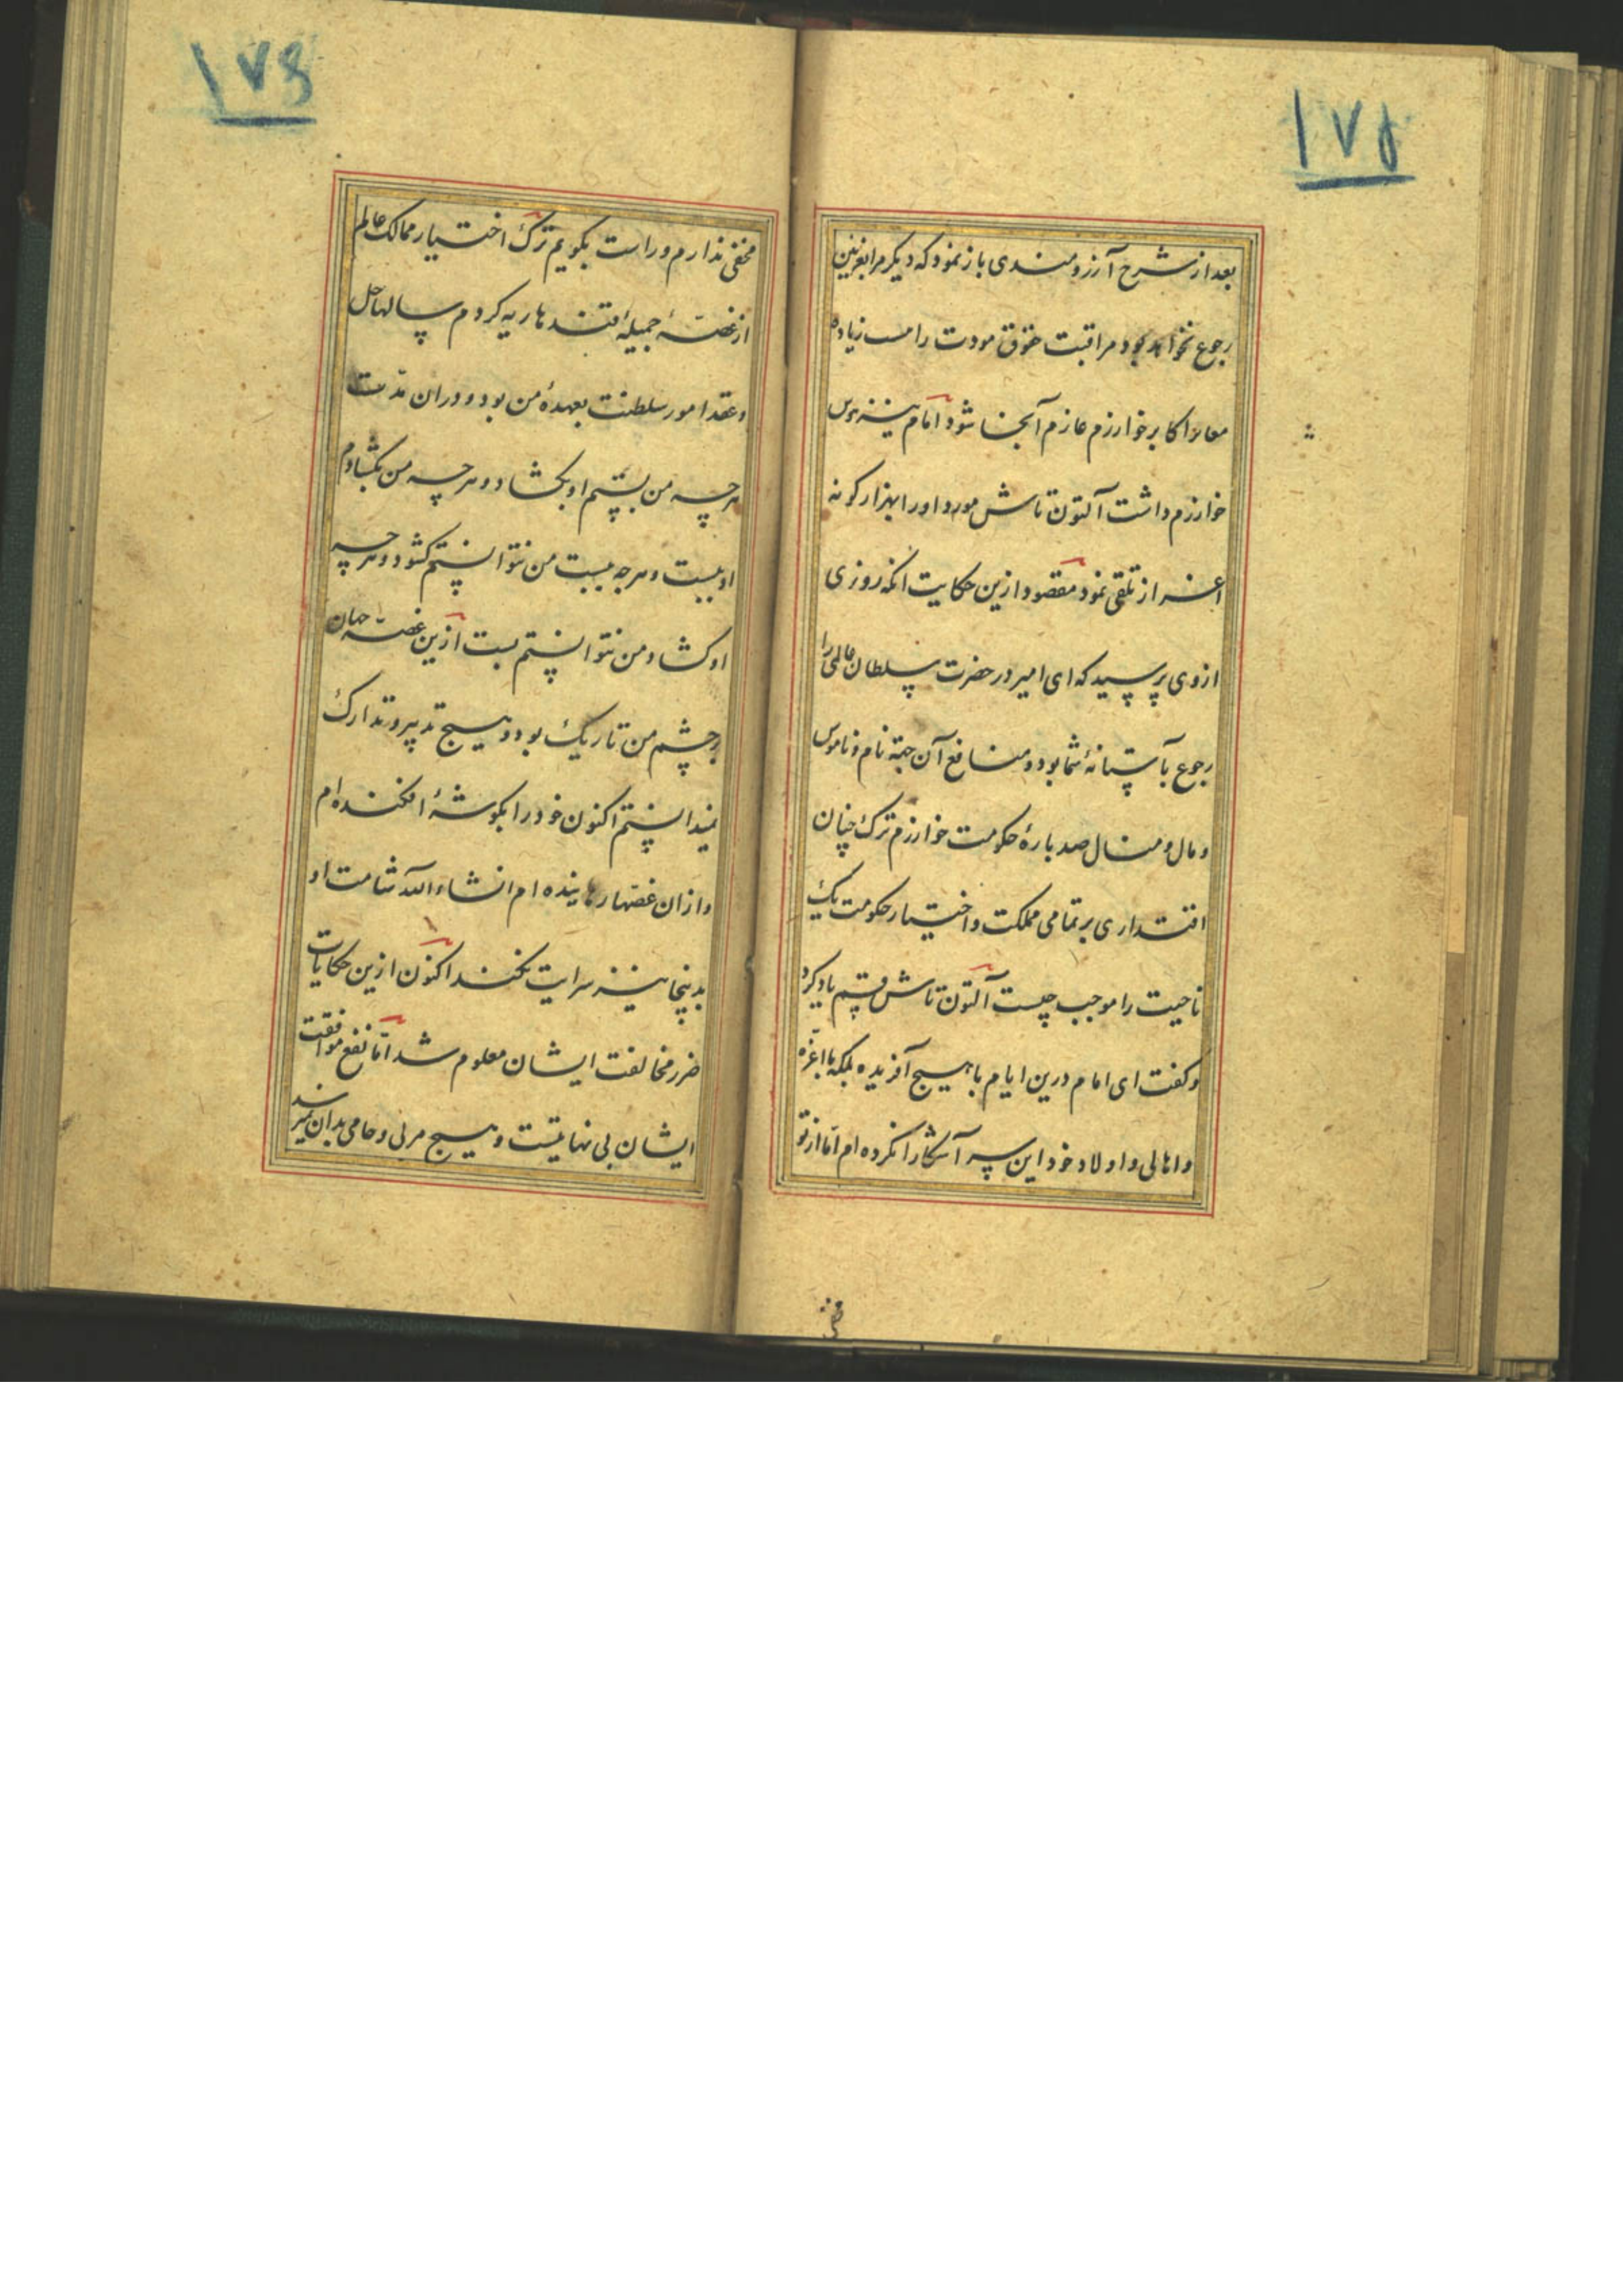 ۱۷۵
بعد از شرح آرزومندی باز نمود که دیکر مرا بغزنین
رجوع نخواهد بود مراقبت حقوق مودت را مسب زیاده
معا اکابر خوارزم عازم آنجا شود امام نیز هوس
خوارزم داشت آلتون تاش مورد او را بهزار کونه
اعزاز تلقی نمود مقصود ازین حکایت انکه روزی
ازوی پرسید که ای امیر در حضرت سلطان عالمی را
رجوع بآستانهٔ شما بود و منافع آن جهة نام و ناموس
و مال و منال صد بارهٔ حکومت خوارزم ترک چنان
اقتداری بر تمامی مملکت و اختیار حکومت یک
ناحیت را موجب چیست آلتون تاش قسم یاد کرد
و کفت ای امام درین ایام با هیچ آفریده بلکه با اعزه
و اهالی و اولاد خود این سر آشکارا نکرده ام اما از تو
مخفی
۱۷۶
مخفی ندارم و راست بکویم ترک اختیار ممالک عالم
از غصهٔ جمیلهٔ قندهاریه کردم سالها حل
و عقد امور سلطنت بعهدهٔ من بود و دران مدت
هر چه من بستم او بکشاد و هر چه من بکشادم
او ببست و هرچه ببست من نتوانستم کشود و هر چه
او کشاد من نتوانستم بست ازین غصه جهان
بر چشم من تاریک بود و هیچ تدبیر و تدارک
نمیدانستم اکنون خود را بکوشهٔ افکنده ام
و ازان غصها رهانیده ام انشاءالله شامت او
بدینجا نیز سرایت نکند اکنون ازین حکایات
ضرر مخالفت ایشان معلوم شد اما نفع موافقت
ایشان بی نهایتست و هیچ مربی و حامی بدان نمیرسد